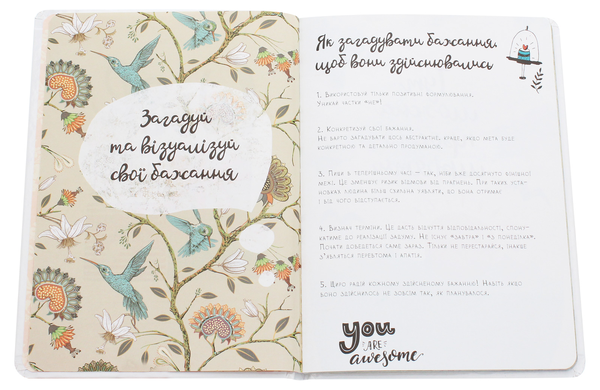 Загадуй
та візуалізуй
свої бажання
Як загадувати бажання,
щоб вони здійснювались
1. Використовуй тільки позитивні формулювання.
Уникай частки «не»!
2. Конкретизуй своє бажання.
Не варто загадувати щось абстрактне, краще, якщо мета буде
конкретною та детально продуманою.
3. Пиши в теперішньому часі – так, ніби вже досягнуто бінішої
межі. Це зменшує разів відмови від прагнень. При таких уста-
новках людина більш схильна уявляти, що вона отримає
і від чого відступається.
4. Визнач терміни. Це дасть відчуття відповідальності, спону-
катиме до реалізації задуму. Не існує «завтра» і «з понеділка».
Почати доведеться саме зараз. Тільки не перестарайся, інакше
з'являться перевтома і апатія.
5. Щиро радій кожному здійсненому бажанню! Навіть якщо
воно здійснилось не зовсім так, як планувалося.
you
ARE
awesome